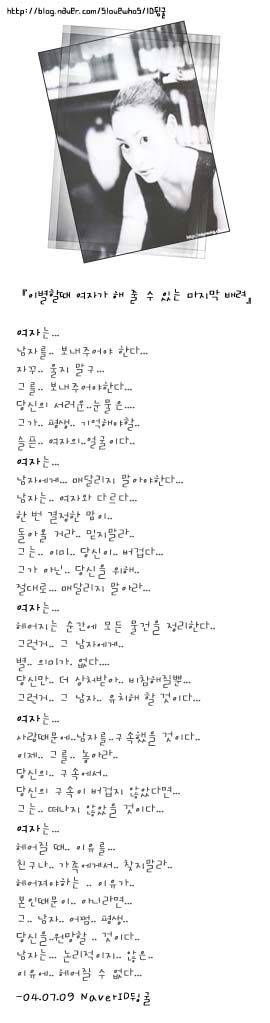 http://blog.naver.com/5love4ho5/ID뒹굴
『이별할때 여자가 해 줄 수 있는 마지막 배려』
여자는...
남자를.. 보내주어야 한다...
자꾸.. 울지 말구...
그를.. 보내주어야한다...
당신의 서러운..눈물은....
그가.. 평생.. 기억해야할..
슬픈.. 여자의..얼굴이다..
여자는...
남자에게... 매달리지 말아야한다...
남자는.. 여자와 다르다...
한 번 결정한 맘이..
돌아올 거라.. 믿지말라..
그는.. 이미.. 당신이 버겁다...
그가 아닌.. 당신을 위해..
절대로... 매달리지 말아라...
여자는...
헤어지는 순간에 모든 물건을 정리한다..
그런거.. 그 남자에게..
별.. 의미가. 없다....
당신만.. 더 상처받아.. 비참해질뿐...
그런거.. 그 남자.. 유치해 할 것이다...
여자는...
사랑때문에..남자를..구속했을 것이다..
이제.. 그를.. 놓아라..
당신의.. 구속에서..
당신의 구속이 버겁지 않았다면...
그는.. 떠나지 않았을 것이다...
여자는...
헤어질 때.. 이유를...
친구나.. 가족에게서.. 찾지말라..
헤어져야하는 .. 이유가..
본인때문이.. 아니라면...
그.. 남자.. 어쩜.. 평생..
당신을..원망할 .. 것이다..
남자는... 논리적이지.. 않은..
이유에.. 헤어질 수 없다...
-04.07.09 NaverID뒹굴